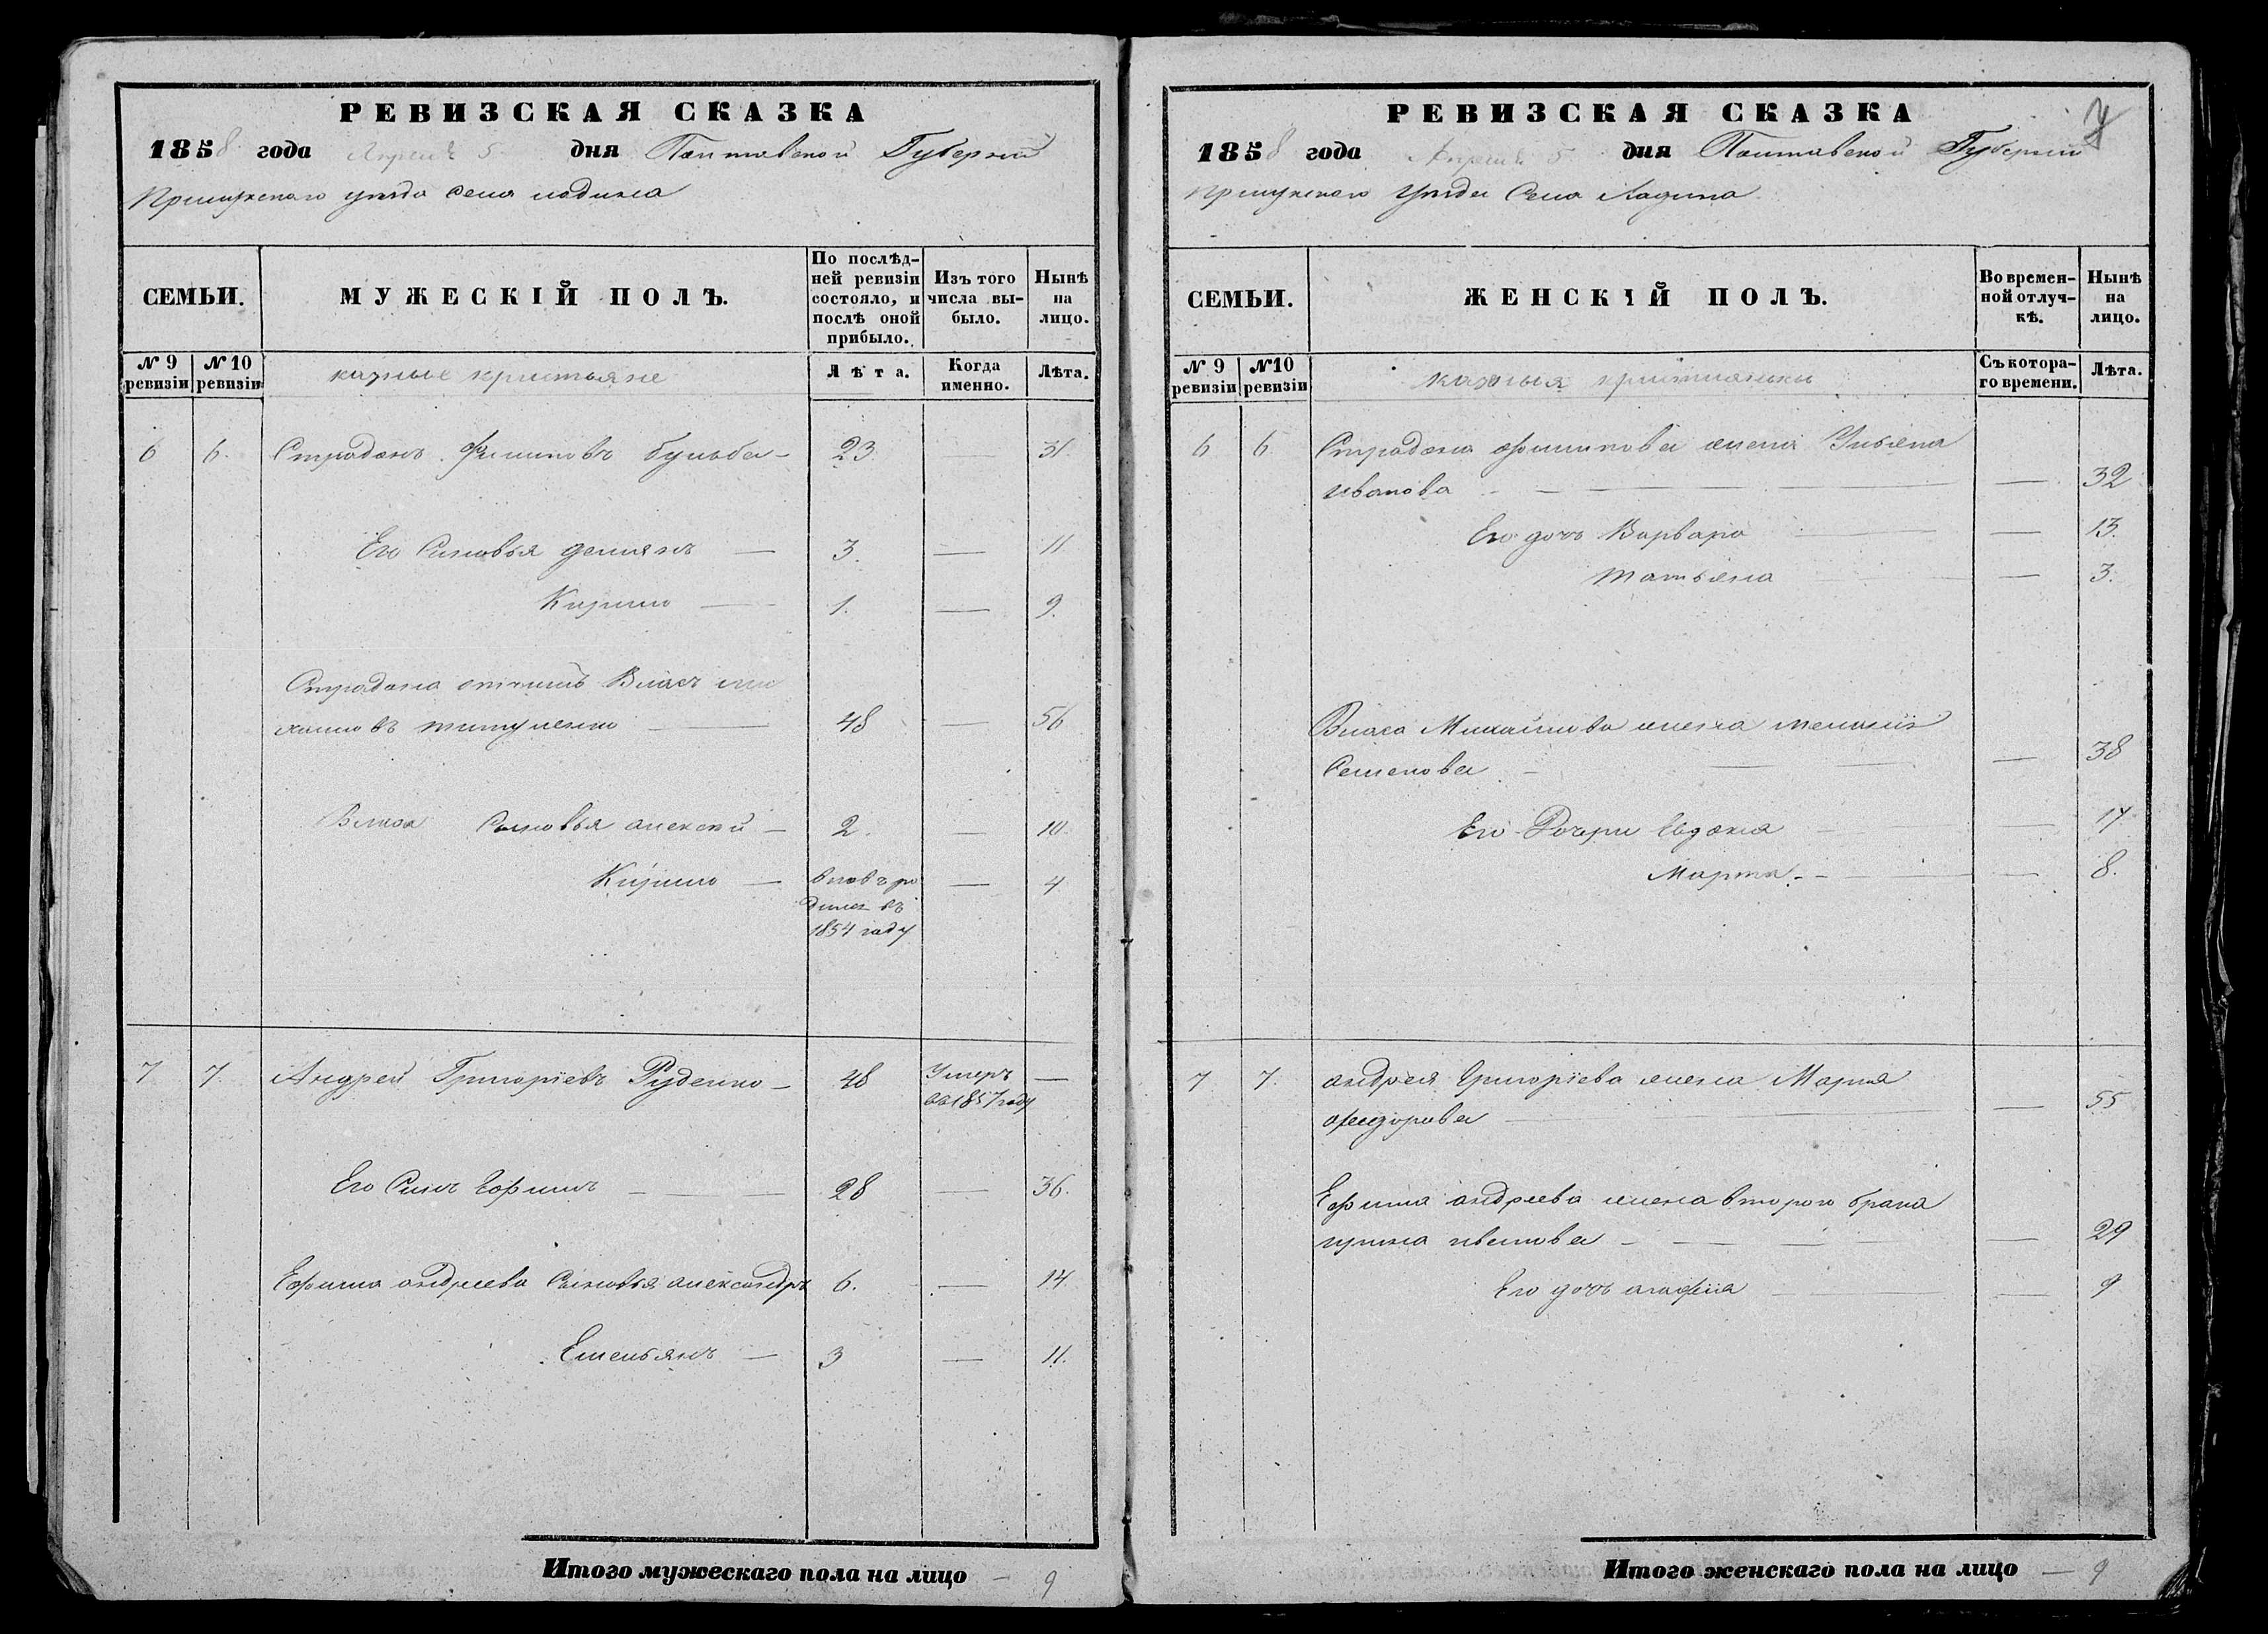 РЕВИЗСКАЯ СКАЗКА
1858 года Апреля 5 дня Полтавской Губернии
Прилукского уезда Села ладина
СЕМЬИ.
МУЖЕСКІЙ ПОЛЪ.
По послѣд-
ней ревизіи
состояло, и
послѣ оной
прибыло.
Изъ того
числа вы-
было.
Нынѣ
на
лицо.
№ 9
ревизіи
№ 10
ревизіи
Лѣта.
Когда
именно.
Лѣта.
6 6. Филиповъ бульба – 23. — 31.
Его Синовья демянъ — 3. — 11
Кирило — 1. — 9.
отчимъ Власъ ми
хаиловъ титученко — 48 — 56
Власа Сыновья алексей — 2. — 10.
Кирило — вновъ ро — 4
дился въ
1854 году
7 7. Андрей Григоріевъ Руденко – 48 Умеръ —
въ 1857 году
Его Синъ Ефимъ — 28 — 36.
Ефима андреева Сыновья александръ 6. — 14.
Емельянъ — 3 — 11.
Итого мужескаго пола на лицо – 9
РЕВИЗСКАЯ СКАЗКА 7
1858 года Апреля 5 дня Полтавской Губернии
Прилукского уезда Села Ладина
СЕМЬИ.
ЖЕНСКІЙ ПОЛЪ.
Во времен-
ной отлуч-
кѣ.
Нынѣ
на
лицо.
№ 9
ревизіи
№10
ревизіи
Съ котора-
го времени.
Лѣта.
6 6 Филипова жена Ульяна
иванова — — 32
Его дочь Варвара — 13.
татьяна — 3.
Власа Михаилова жена меланія
Семенова — — 38
Его Дочери Евдокия — 17
Марта — — 8.
7 7. андрея Григоріева жена Мария
федорова — — 55
Ефима андреева жена второго брака
ивanова — — 29
Его дочь агафия — — 9
Итого женскаго пола на лицо — 9